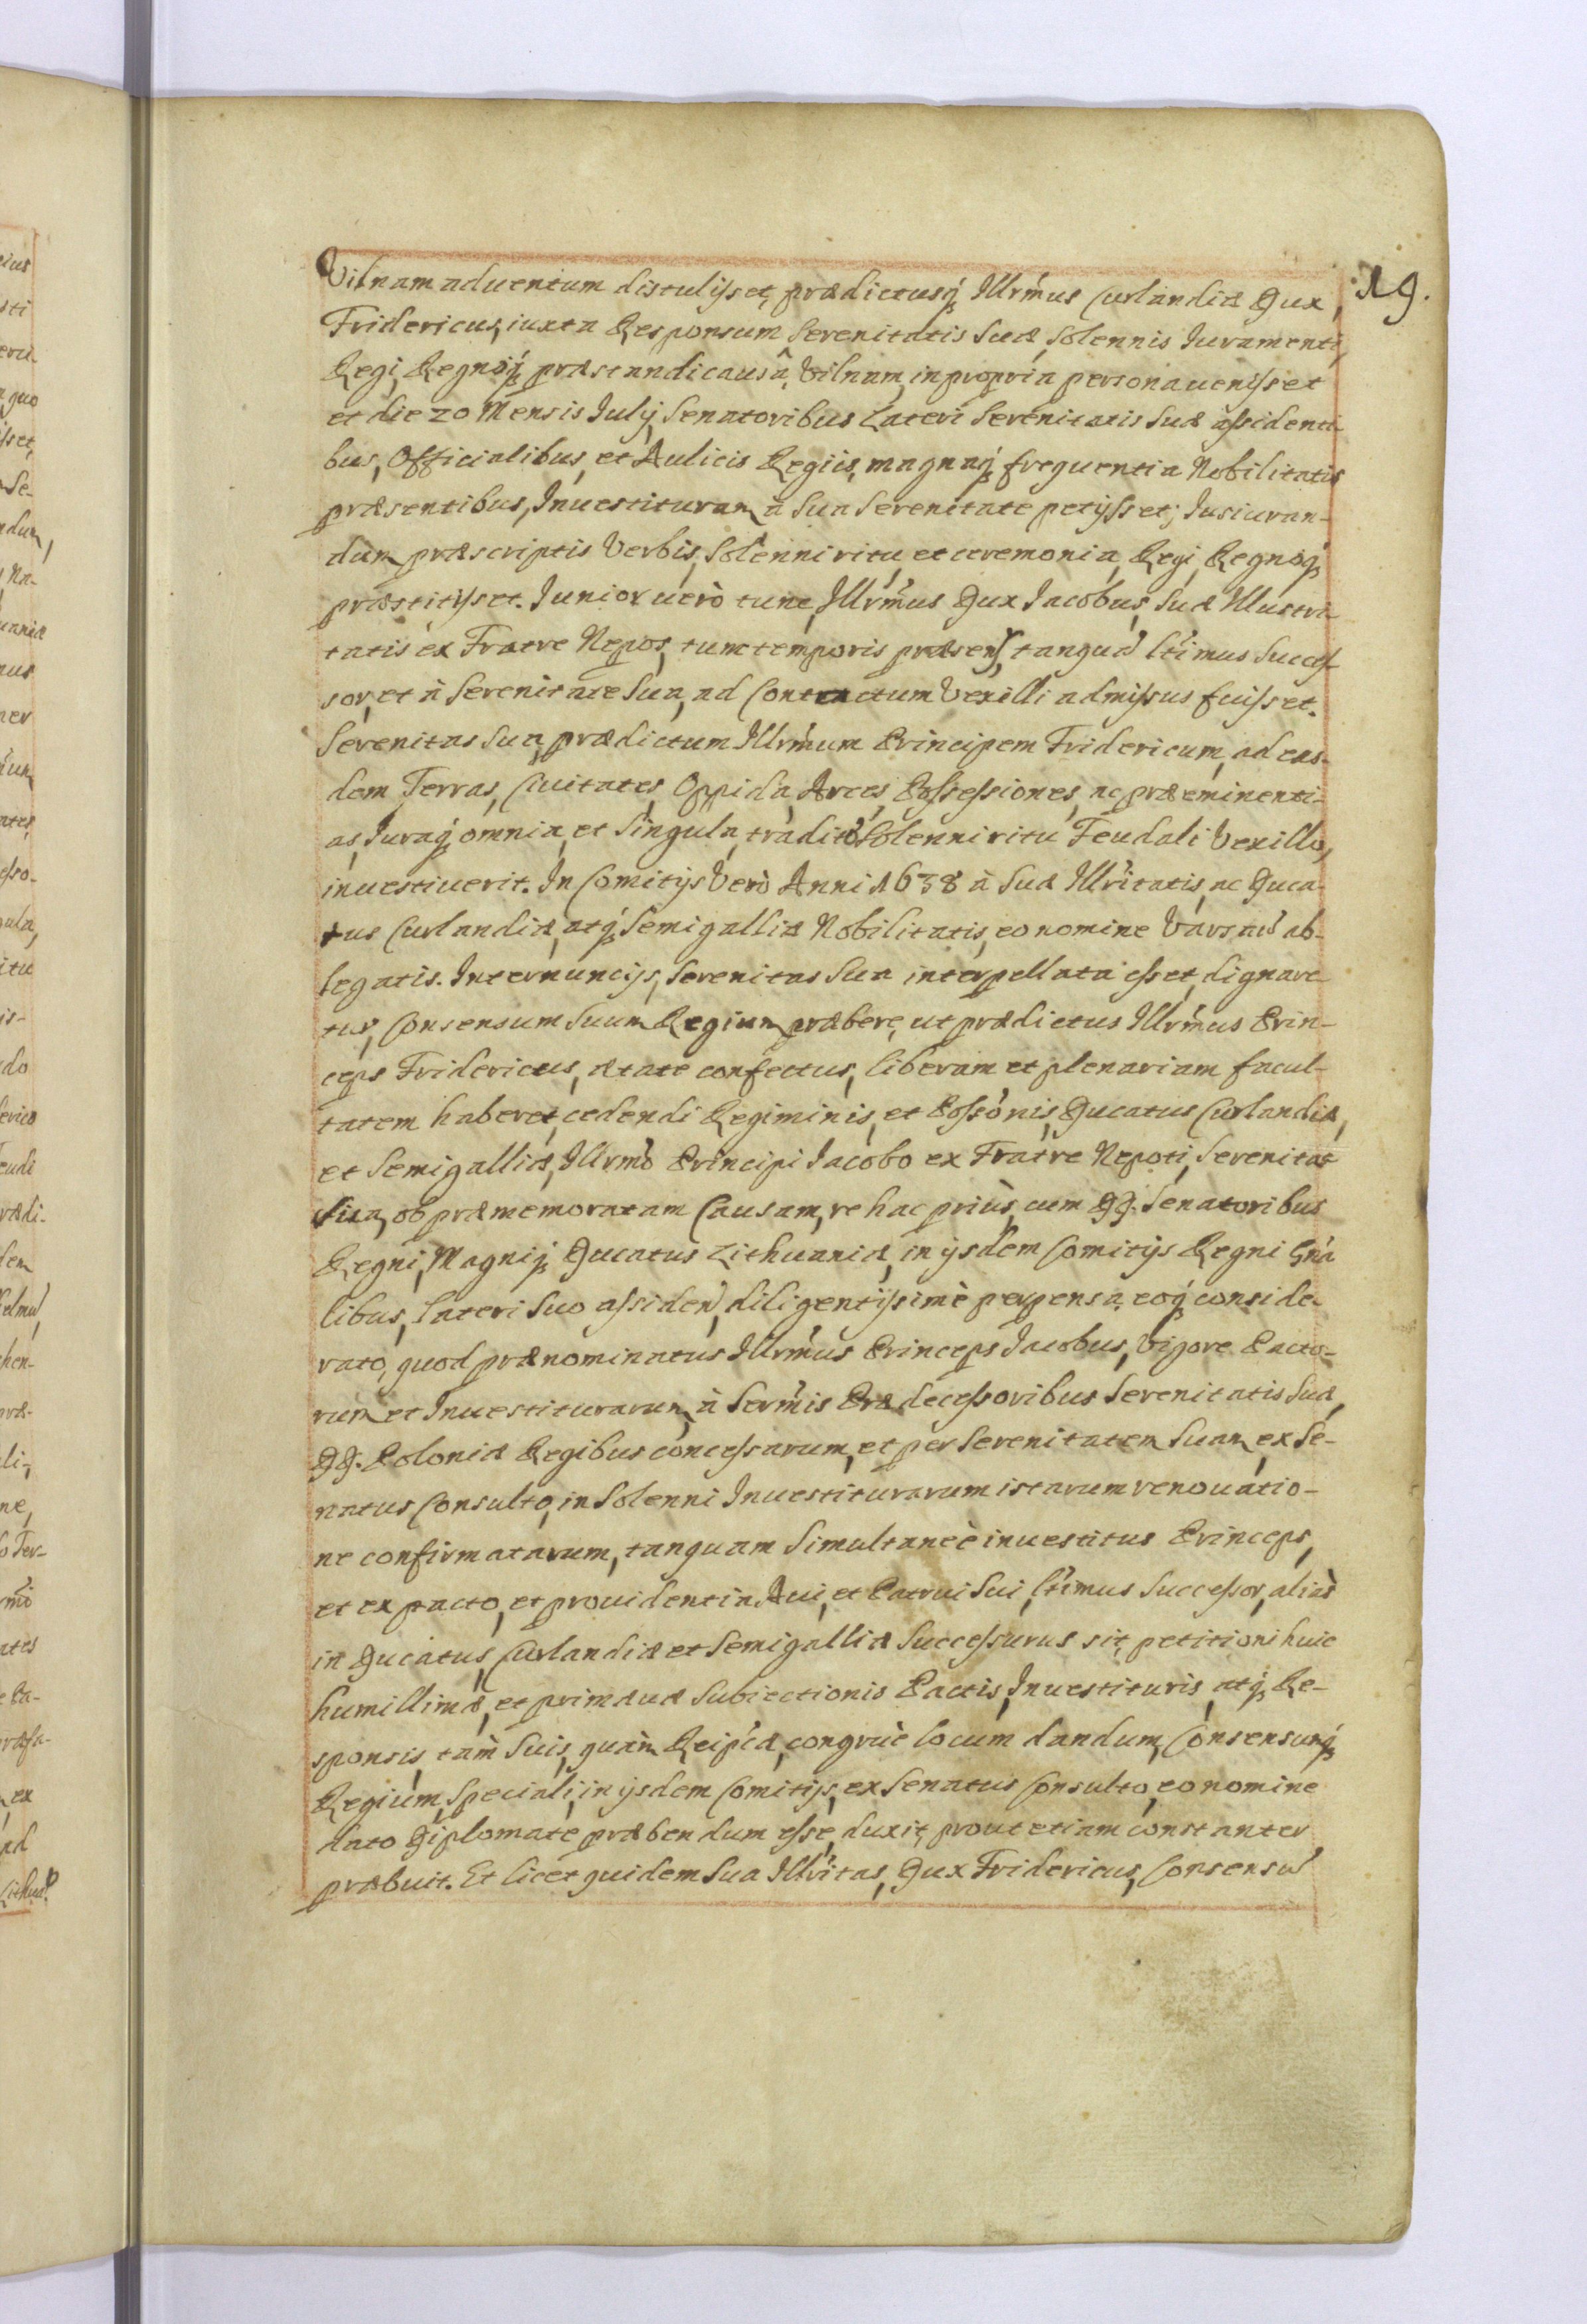 19.
Vilnam aduentum distulisset, prædictusq́ Illrm̃us Curlandiæ Dux,
Fridericus, iuxta Responsum Serenitatis Suæ, Solennis Iuramenti,
Regi, Regnoq́ præstandi causâ, Vilnam, in propria persona uenisset
et die 20 Mensis Iulij, Senatoribus Lateri Serenitatis Suæ assidenti-
bus, Officialibus, et Aulicis Regiis, magnaq́ frequentia Nobilitatis
præsentibus, Inuestituram à Sua Serenitate petijsset; Iusiuran-
dum præscriptis Verbis, Solenni ritu, et ceremonia, Regi, Regnoq́
præstitisset. Iunior uerò tunc, Illrm̃us Dux Iacobus, Suæ Illustri-
tatis ex Fratre Nepos, tunc temporis præsens, tanquã Ltimus Succes-
sor, et à Serenitate Sua, ad Contactum Vexilli admissus fuisset.
Serenitas Sua, prædictum Illrm̃um Principem Fridericum, ad eas-
dem Terras, Ciuitates, Oppida, Arces, Possessiones, ac præeminenti-
as, Iuraq́ omnia, et Singula, tradito Solenni ritu Feudali Vexillo,
inuestiuerit. In Comitijs Verò Anni 1638 à Suæ Illri͂tatis, ac Duca-
tus Curlandiæ, atq́ Semigalliæ Nobilitatis, eo nomine Varsauiã ab-
legatis. Internuncijs, Serenitas Sua interpellata esset, dignare-
tur, Consensum Suum Regium præbere, ut prædictus Illrm̃us Prin-
ceps Fridericus, ætate confectus, liberam et plenariam facul-
tatem haberet, cedendi Regiminis, et Possõnis, Ducatus Curlandiæ,
et Semigalliæ, Illrm̃o Principi Iacobo ex Fratre Nepoti, Serenitas
Sua, ob præmemoratam Causam, re hac priùs, cum DD. Senatoribus
Regni, Magniq́ Ducatus Lithuaniæ, in ijsdem Comitijs Regni Gñа-
libus, Lateri Suo assideñ, diligentissimè perpensa, eoq́ conside-
rato, quod prænominatus Illrm̃us Princeps Iacobus, Vigore Pacto-
rum et Inuestiturarum, à Serm̃is Prædecessoribus Serenitatis Suæ,
DD. Poloniæ Regibus concessarum, et per Serenitatem Suam, ex Se-
natus Consulto, in Solenni Inuestiturarum istarum renouatio-
ne confirmatarum, tanquam Simultaneè inuestitus Princeps,
et ex pacto, et prouidentia Aui, et Patrui Sui, Ltimus Successor, aliàs
in Ducatus, Curlandiæ et Semigalliæ Successurus sit, petitioni huic
humillimæ, et primæuæ Subiectionis Pactis, Inuestituris, atq́ Re-
sponsis, tàm Suis, quàm Reip̃cæ, congruè locum dandum, Consensumq́
Regium, Speciali, in ijsdem Comitijs, ex Senatus Consulto, eo nomine
dato Diplomate præbendum esse, duxit, prout etiam constanter
præbuit. Et licet quidem Sua Illri͂tas, Dux Fridericus, Consensũ